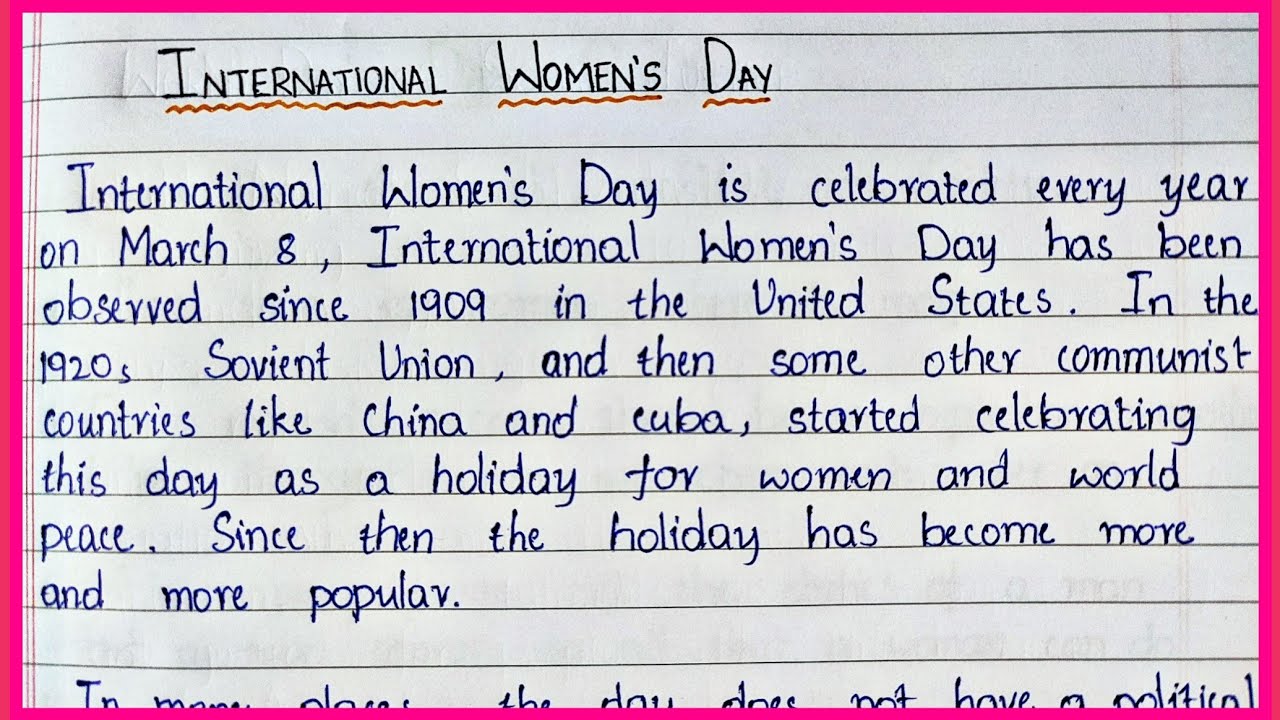 INTERNATIONAL WOMEN'S DAY
International Women's Day is celebrated every year
on March 8, International Women's Day has been
observed since 1909 in the United States. In the
1920s Sovient Union, and then some other communist
countries like China and cuba, started celebrating
this day as a holiday for women and world
peace. Since then the holiday has become more
and more popular.
In many places the day does not have a political